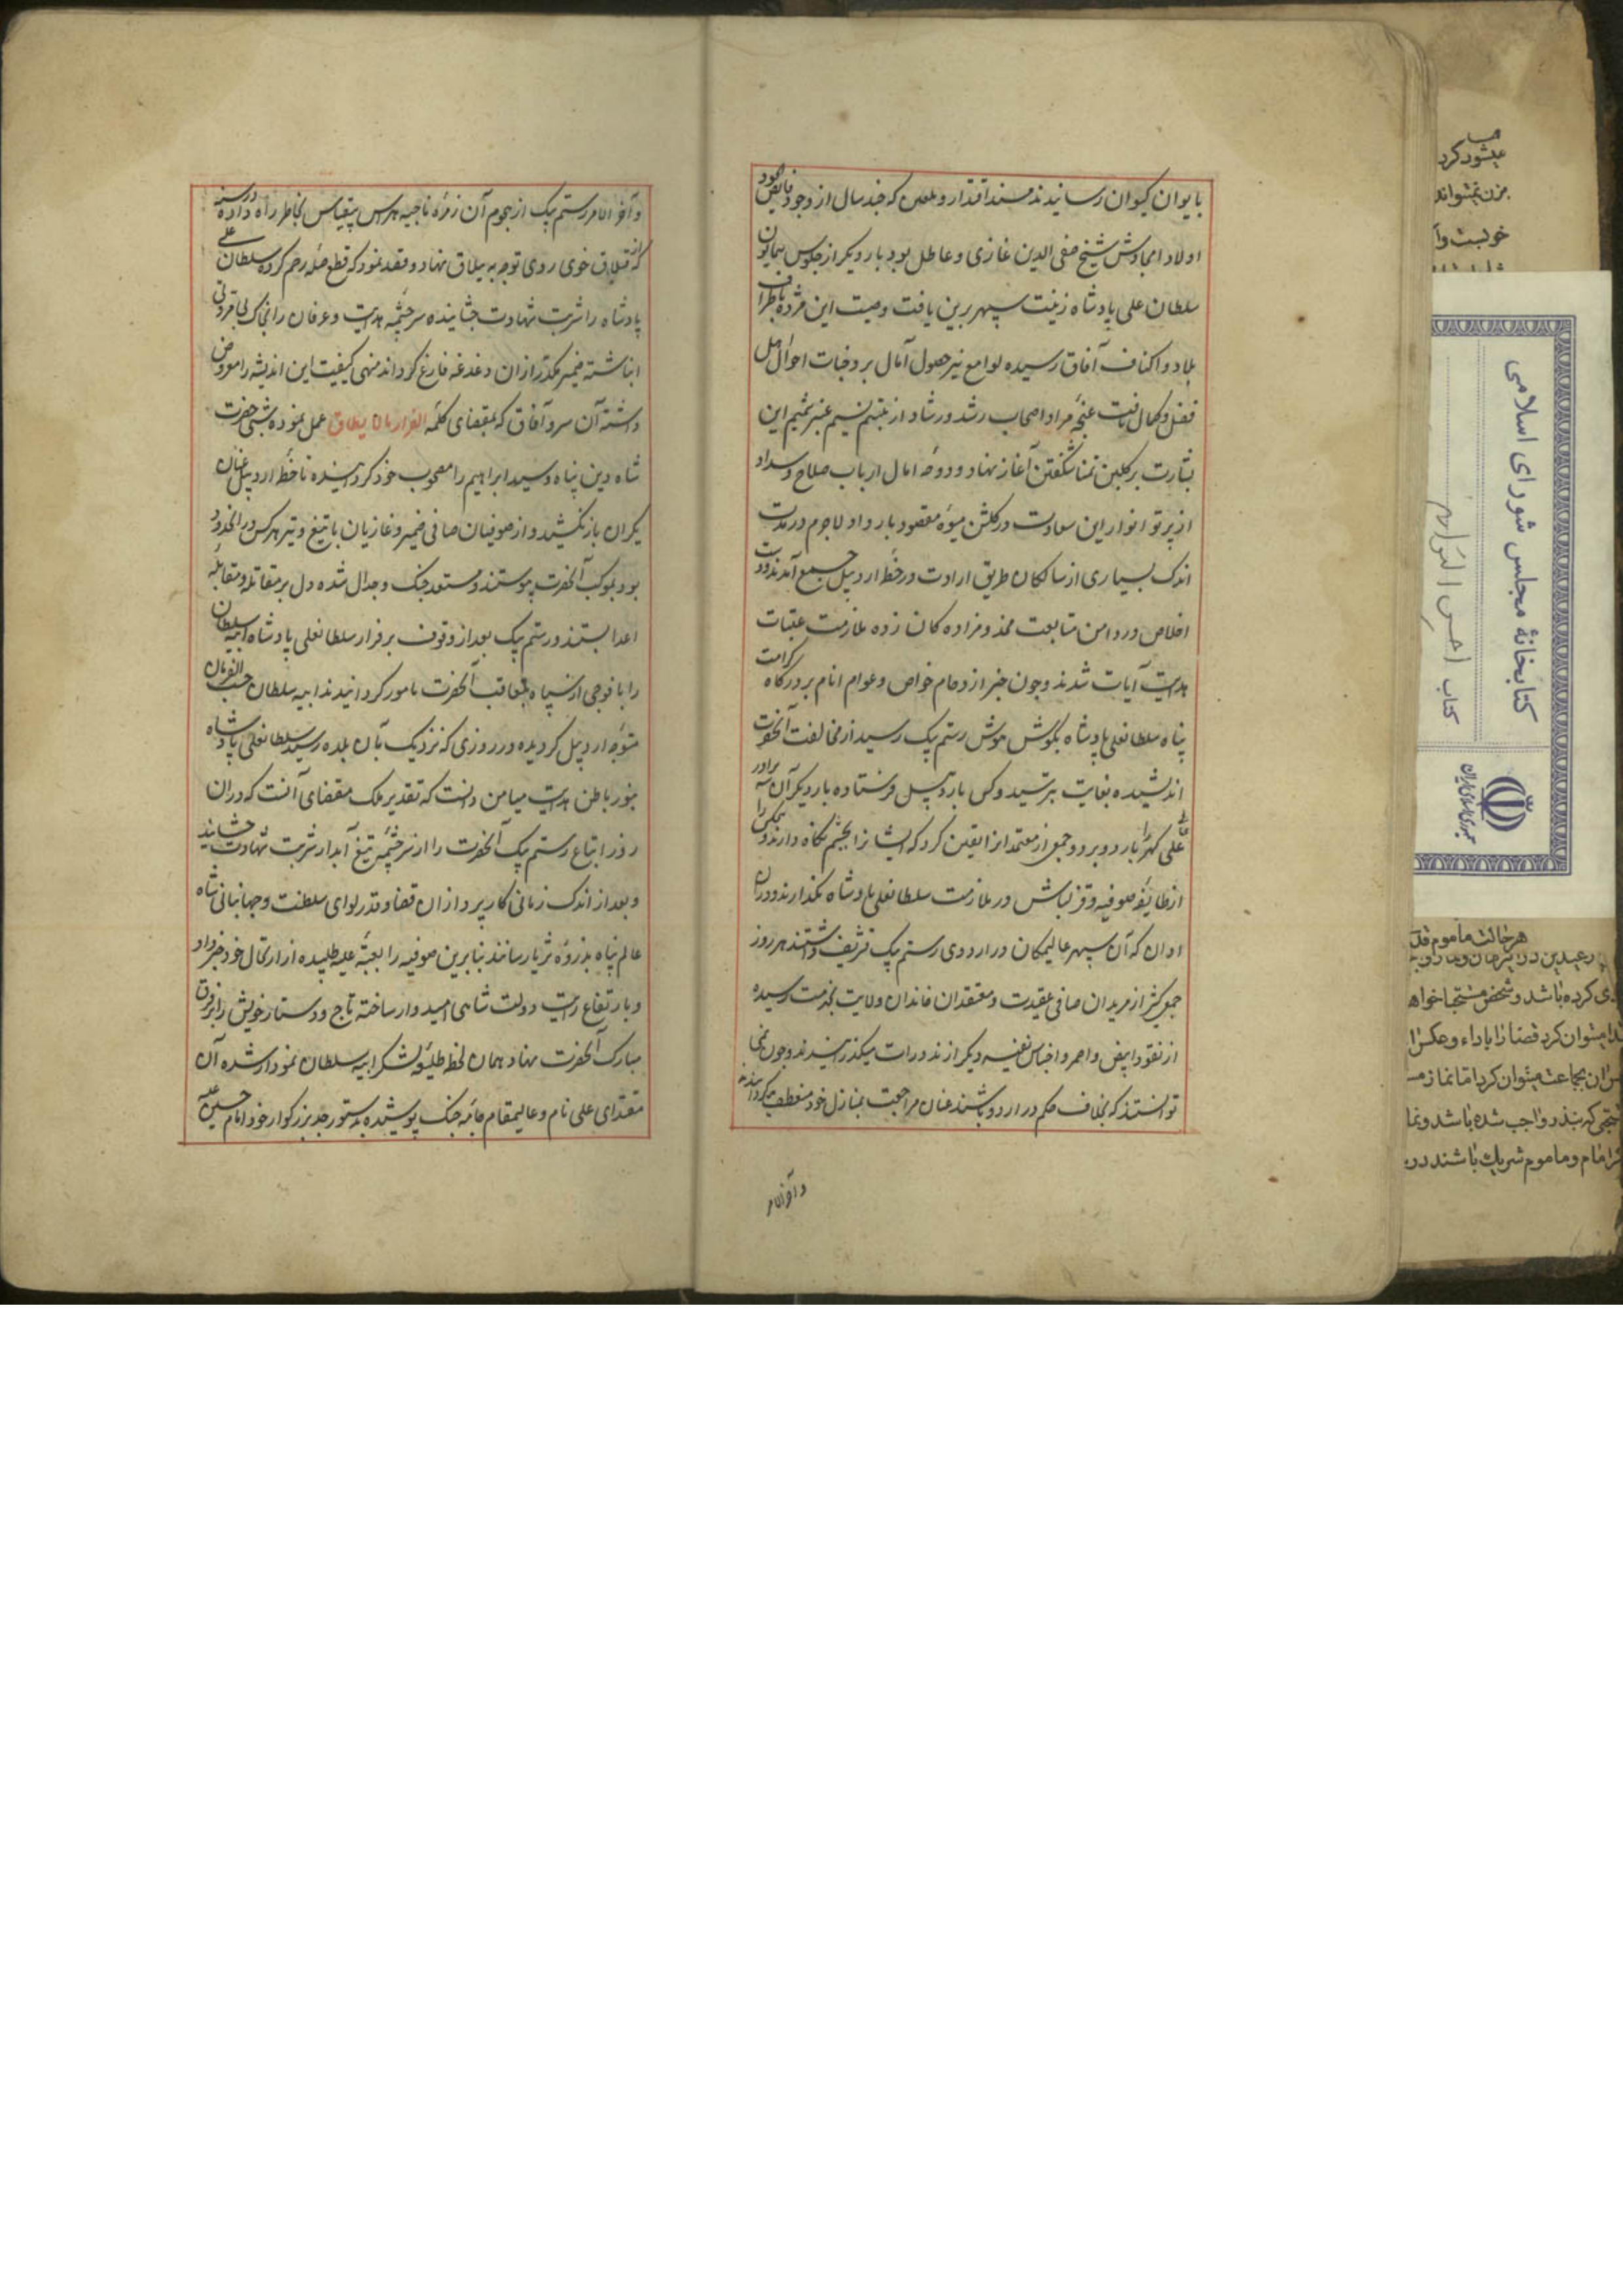 بایوان کیوان رسانیدند مسند اقتدار و که چند سال از وجود فایض الجود
اولاد امجادش شیخ صفی الدین غازی و عاطل بود بار دیگر از جلوس همایون
سلطان علی پادشاه زینت سپهر برین یافت وصیت این مژده باطراف
بلاد و اکناف آفاق رسیده لوامع نیر حصول آمال بر وجنات احوال اهل
فضل و کمال تافت غنچه مراد اصحاب رشد و رشاد از تبسم نسیم عنبر شمیم این
بشارت بر کلبن تمنا شکفتن آغاز نهاد و دوحه امال ارباب صلاح و سداد
از پرتو انوار این سعادت در کلشن میوه مقصود بار داد لاجرم در مدت
اندک بسیاری از سالکان طریق ارادت در خطه اردبیل جمع آمدند و دست
اخلاص در دامن متابعت مخدومزاده کان زده ملازمت عتبات
هدایت آیات شدند و چون خبر ازدحام خواص و عوام انام بر درکاه کرامت
پناه سلطانعلی پادشاه بکوش هوش رستم بیک رسید از مخالفت آنحضرت
اندیشیده بغایت بترسید و کس باردبیل فرستاده بار دیکر آن سه برادر
را باردو برد و جمعی از معتمدانرا تعین کرد که ایشانرا بچشم نکاه دارند و
از طایفه صوفیه و قزلباش در ملازمت سلطانعلی پادشاه نکذارند و در ان
اوان که آن سپهر عالیمکان در اردوی رستم بیک تشریف داشتند هر روز
جمعی کثیر از مریدان صافی عقیدت و معتقدان خاندان ولایت بخدمت رسیده
از نقود ابیض و احمر و اجناس نفیسه دیکر از نذورات میکذرانیدند و چون نمی
توانستند که بخلاف حکم در اردو باشند عنان مراجعت بمنازل خود منعطف میکردانیدند
و آخر الامر
و آخر الامر رستم بیک از هجوم آن زمره ناجیه هراس بیقیاس بخاطر راه داده در سنه
که از قشلاق خوی روی توجه به ییلاق نهاد و قصد نمود که قطع صله رحم کرده سلطان علی
پادشاه را شربت شهادت چشانیده سرچشمه هدایت و عرفان را بخاک بی مروتی
انباشته ضمیر مکدر از ان دغدغه فارغ کرداند منهی کیفیت این اندیشه را معروض
داشته آن سرو آفاق که بمقتضای کلمه الفرار مما لا یطاق عمل نموده شبی حضرت
شاه دین پناه و سید ابراهیم را مصحوب خود کردانیده تا خطه اردبیل عنان
یکران باز نکشید و از صوفیان صافی ضمیر و غازیان با تیغ و تیر هر کس در آنحدود
بود بموکب آنحضرت پیوستند و مستعد جنک و جدال شده دل بر مقاتله و مقابله
اعدا بستند و رستم بیک بعد از وقوف بر فرار سلطانعلی پادشاه ایبه سلطان
را با فوجی از سپاه بتعاقب آنحضرت مامور کردانیدند ایبه سلطان حسب الفرمان
متوجه اردبیل کردیده در روزی که نزدیک بآن بلده رسید سلطانعلی پادشاه
بنور باطن هدایت میامن دانست که تقدیر ملک مقتضای آنست که در ان
روز اتباع رستم بیک آنحضرت را از سرچشمه تیغ آبدار شربت شهادت چشانید
و بعد از اندک زمانی کارپردازان قضا و قدر لوای سلطنت و جهانبانی شاه
عالم پناه بذروه ثریا رسانند بنابرین صوفیه را بعتبه علیه طلبیده از ارتحال خود خبر داد
و بارتفاع رایت دولت شاهی امیدوار ساخته تاج و دستار خویش را بر فرق
مبارک آنحضرت نهاد همان لحظه طلیعه لشکر ایبه سلطان نمودار شده آن
مقتدای علی نام و عالیمقام جامه جنک پوشیده بدستور جد بزرکوار خود امام حسین علیه
کتابخانهٔ مجلس شورای اسلامی
کتاب احسن التواریخ
جمهوری اسلامی ایران
میشود کرد
بزن نمیتواند
هر حالت ماموم قدر